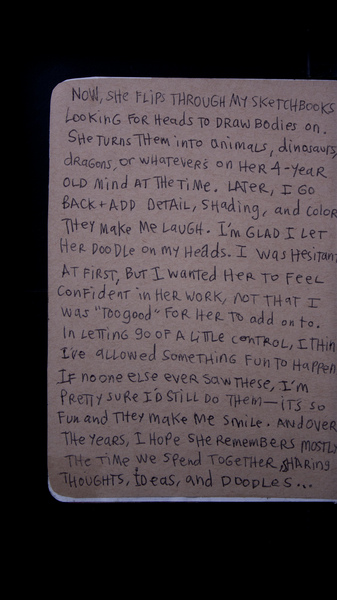 NOW, SHE FLIPS THROUGH MY SKETCHBOOKS
LOOKING FOR HEADS TO DRAW BODIES ON.
SHE TURNS THEM INTO animals, dinosaurs,
dragons, or WHATEVER'S ON HER 4-YEAR
OLD MIND AT THE TIME. LATER, I GO
BACK + ADD DETAIL, SHADING, and COLOR
THEY MAKE ME LAUGH. I'M GLAD I LET
HER DOODLE ON MY HEADS. I WAS HESITANT
AT FIRST, BUT I WANTED HER TO FEEL
CONFIDENT IN HER WORK, NOT THAT I
WAS "TOO GOOD" FOR HER TO ADD ON TO.
IN LETTING GO OF A LITTLE CONTROL, I THIN
I'VE ALLOWED SOMETHING FUN TO HAPPEN
IF NO ONE ELSE EVER SAW THESE, I'M
PRETTY SURE I'D STILL DO THEM—IT'S SO
FUN AND THEY MAKE ME SMILE. AND OVER
THE YEARS, I HOPE SHE REMEMBERS MOSTLY
THE TIME WE SPEND TOGETHER SHARING
THOUGHTS, IDEAS, and DOODLES...